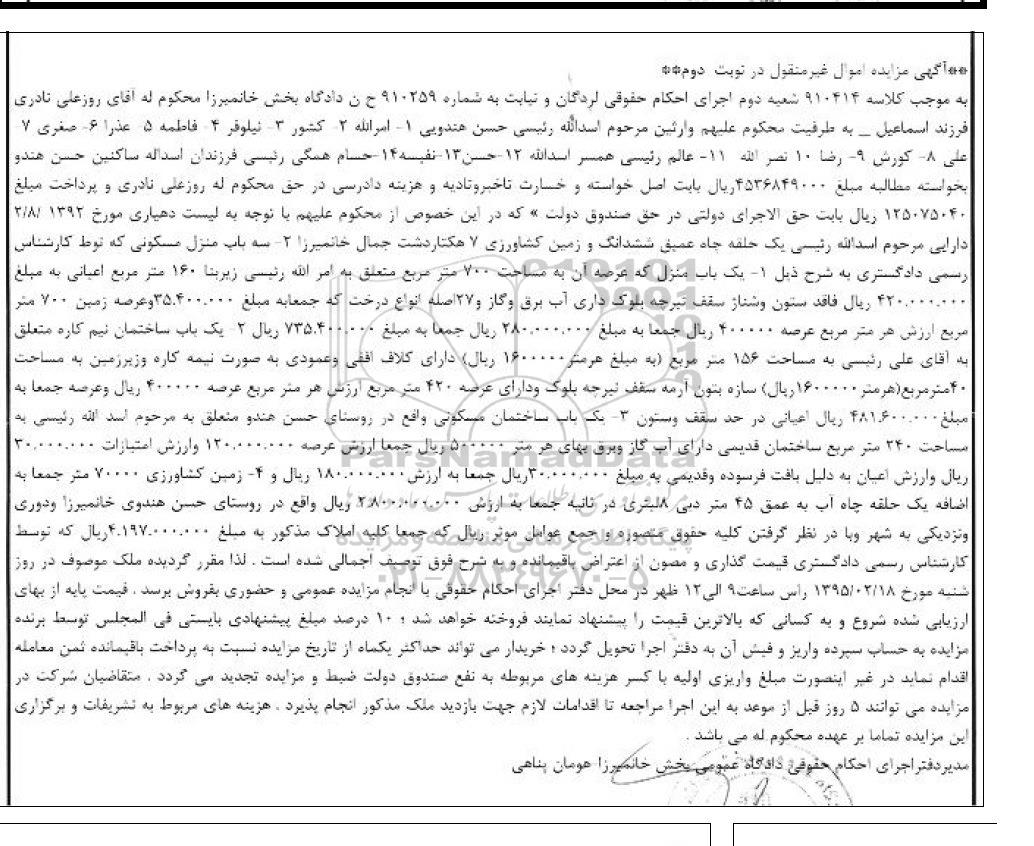 **آگهی مزایده اموال غیرمنقول در نوبت دوم**
به موجب کلاسه ۹۱۰۴۱۴ شعبه دوم اجرای احکام حقوقی لردگان و نیابت به شماره ۹۱۰۲۵۹ ح ن دادگاه بخش خانمیرزا محکوم له آقای روزعلی نادری
فرزند اسماعیل _ به طرفیت محکوم علیهم وارثین مرحوم اسدالله رئیسی حسن هندویی ۱- امرالله ۲- کشور ۳- نیلوفر ۴- فاطمه ۵- عذرا ۶- صغری ۷-
علی ۸- کورش ۹- رضا ۱۰ نصر الله ۱۱- عالم رئیسی همسر اسدالله ۱۲-حسن۱۳-نفیسه۱۴-حسام همگی رئیسی فرزندان اسداله ساکنین حسن هندو
بخواسته مطالبه مبلغ ۴۵۳۶۸۴۹۰۰۰ریال بابت اصل خواسته و خسارت تاخیروتادیه و هزینه دادرسی در حق محکوم له روزعلی نادری و پرداخت مبلغ
۱۲۵۰۷۵۰۴۰ ریال بابت حق الاجرای دولتی در حق صندوق دولت » که در این خصوص از محکوم علیهم با توجه به لیست دهیاری مورخ ۱۳۹۲ /۲/۸
دارایی مرحوم اسدالله رئیسی یک حلقه چاه عمیق ششدانگ و زمین کشاورزی ۷ هکتاردشت جمال خانمیرزا ۲- سه باب منزل مسکونی که توط کارشناس
رسمی دادگستری به شرح ذیل ۱- یک باب منزل که عرصه آن به مساحت ۷۰۰ متر مربع متعلق به امر الله رئیسی زیربنا ۱۶۰ متر مربع اعیانی به مبلغ
۴۲۰.۰۰۰.۰۰۰ ریال فاقد ستون وشناژ سقف تیرچه بلوک داری آب برق وگاز و۲۷اصله انواع درخت که جمعابه مبلغ ۳۵.۴۰۰.۰۰۰وعرصه زمین ۷۰۰ متر
مربع ارزش هر متر مربع عرصه ۴۰۰۰۰۰ ریال جمعا به مبلغ ۲۸۰.۰۰۰.۰۰۰ ریال جمعا به مبلغ ۷۳۵.۴۰۰.۰۰۰ ریال ۲- یک باب ساختمان نیم کاره متعلق
به آقای علی رئیسی به مساحت ۱۵۶ متر مربع (به مبلغ هرمتر۱۶۰۰۰۰۰ ریال) دارای کلاف افقی وعمودی به صورت نیمه کاره وزیرزمین به مساحت
۴۰مترمربع(هرمتر۱۶۰۰۰۰۰ریال) سازه بتون آرمه سقف تیرچه بلوک ودارای عرصه ۴۲۰ متر مربع ارزش هر متر مربع عرصه ۴۰۰۰۰۰ ریال وعرصه جمعا به
مبلغ۴۸۱.۶۰۰.۰۰۰ ریال اعیانی در حد سقف وستون ۳- یک باب ساختمان مسکونی واقع در روستای حسن هندو متعلق به مرحوم اسد الله رئیسی به
مساحت ۲۴۰ متر مربع ساختمان قدیمی دارای آب گاز وبرق بهای هر متر ۵۰۰۰۰۰ ریال جمعا ارزش عرصه ۱۲۰.۰۰۰.۰۰۰ وارزش امتیازات ۳۰.۰۰۰.۰۰۰
ریال وارزش اعیان به دلیل بافت فرسوده وقدیمی به مبلغ ۳۰.۰۰۰.۰۰۰ریال جمعا به ارزش ۱۸۰.۰۰۰.۰۰۰ ریال و ۴- زمین کشاورزی ۷۰۰۰۰ متر جمعا به
اضافه یک حلقه چاه آب به عمق ۴۵ متر دبی ۸لیتری در ثانیه جمعا به ارزش ۲.۸۰۰.۰۰۰.۰۰۰ ریال واقع در روستای حسن هندوی خانمیرزا ودوری
ونزدیکی به شهر وبا در نظر گرفتن کلیه حقوق متصوره و جمع عوامل موثر ریال که جمعا کلیه املاک مذکور به مبلغ ۴.۱۹۷.۰۰۰.۰۰۰ریال که توسط
کارشناس رسمی دادگستری قیمت گذاری و مصون از اعتراض باقیمانده و به شرح فوق توصیف اجمالی شده است . لذا مقرر گردیده ملک موصوف در روز
شنبه مورخ ۱۳۹۵/۰۲/۱۸ راس ساعت۹ الی۱۲ ظهر در محل دفتر اجرای احکام حقوقی با انجام مزایده عمومی و حضوری بفروش برسد . قیمت پایه از بهای
ارزیابی شده شروع و به کسانی که بالاترین قیمت را پیشنهاد نمایند فروخته خواهد شد ؛ ۱۰ درصد مبلغ پیشنهادی بایستی فی المجلس توسط برنده
مزایده به حساب سپرده واریز و فیش آن به دفتر اجرا تحویل گردد ؛ خریدار می تواند حداکثر یکماه از تاریخ مزایده نسبت به پرداخت باقیمانده ثمن معامله
اقدام نماید در غیر اینصورت مبلغ واریزی اولیه با کسر هزینه های مربوطه به نفع صندوق دولت ضبط و مزایده تجدید می گردد . متقاضیان شرکت در
مزایده می توانند ۵ روز قبل از موعد به این اجرا مراجعه تا اقدامات لازم جهت بازدید ملک مذکور انجام پذیرد . هزینه های مربوط به تشریفات و برگزاری
این مزایده تماما بر عهده محکوم له می باشد .
مدیردفتراجرای احکام حقوقی دادگاه عمومی بخش خانمیرزا هومان پناهی
ParsNamadData
پایگاه اطلاع رسانی مناقصه و مزایده
۰۲۱-۸۸۳۴۹۶۷۰-۵